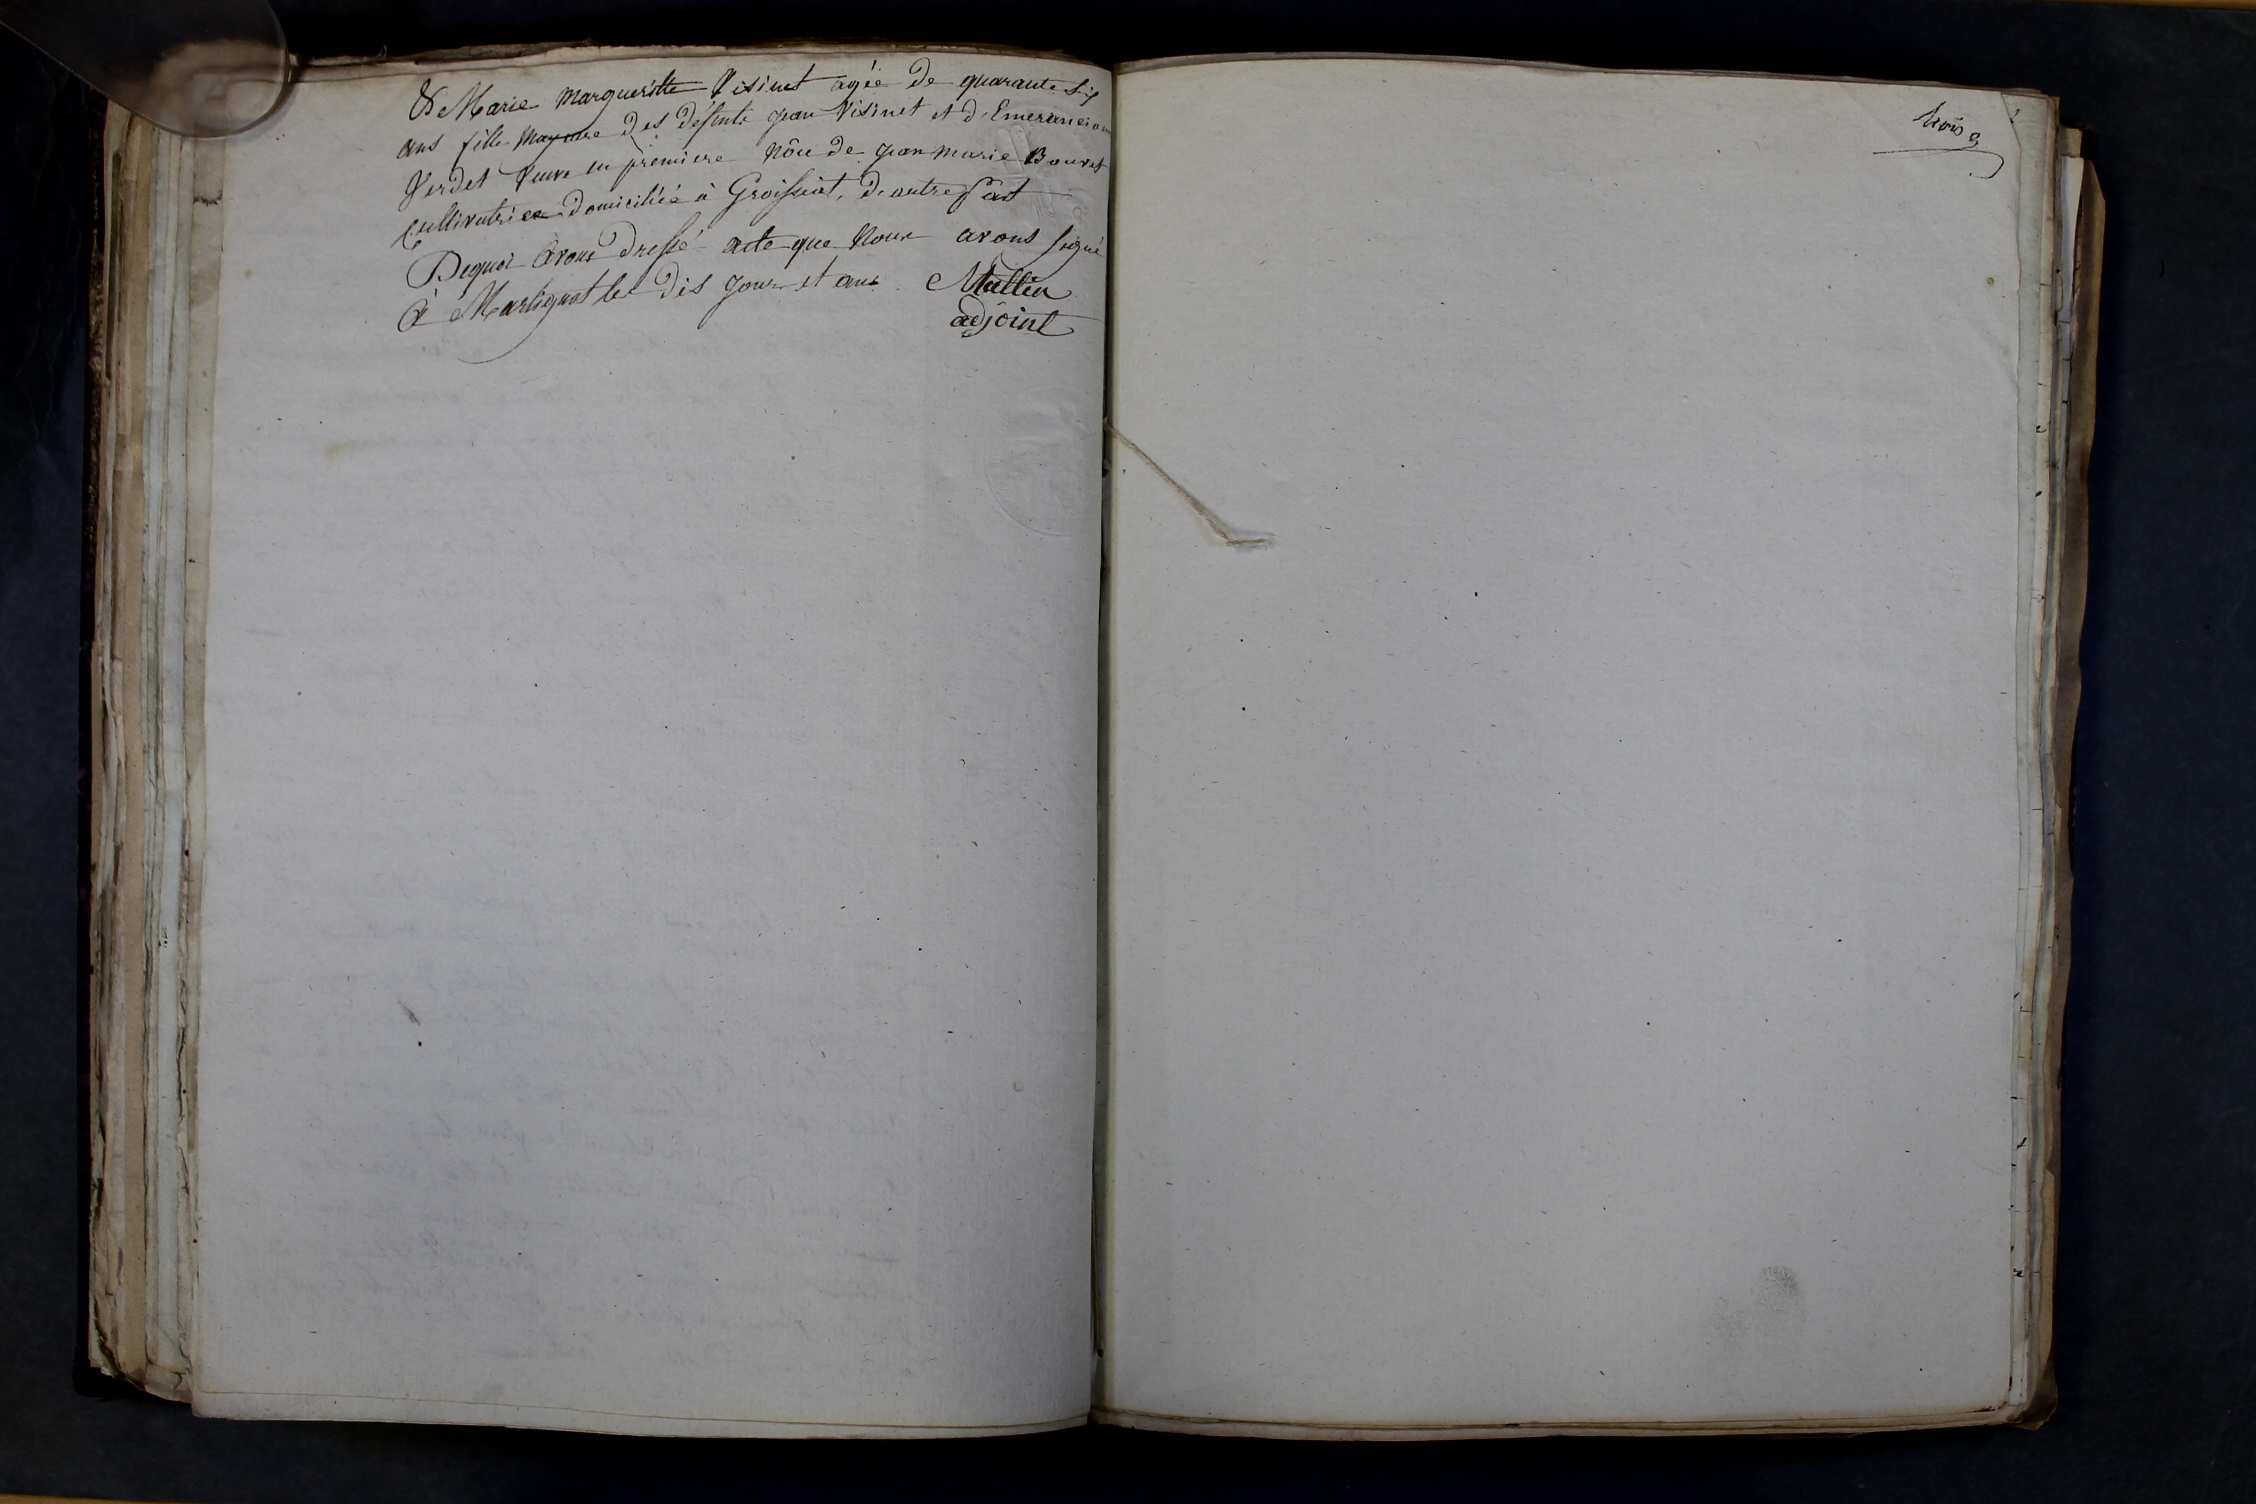 & Marie Margueritte Visinet agée de quarante six
ans fille Majeure des défunts jean Visinet et d'Emerancienne
Verdet Veuve en premiere Nôce de jean marie Bouvet
Cultivatrice domiciliée à Groissiat, d'autre Part
Dequoi avons dressé acte que Nous avons signé
à Martignat les dis jour et ans Mullin
adjoint
trois